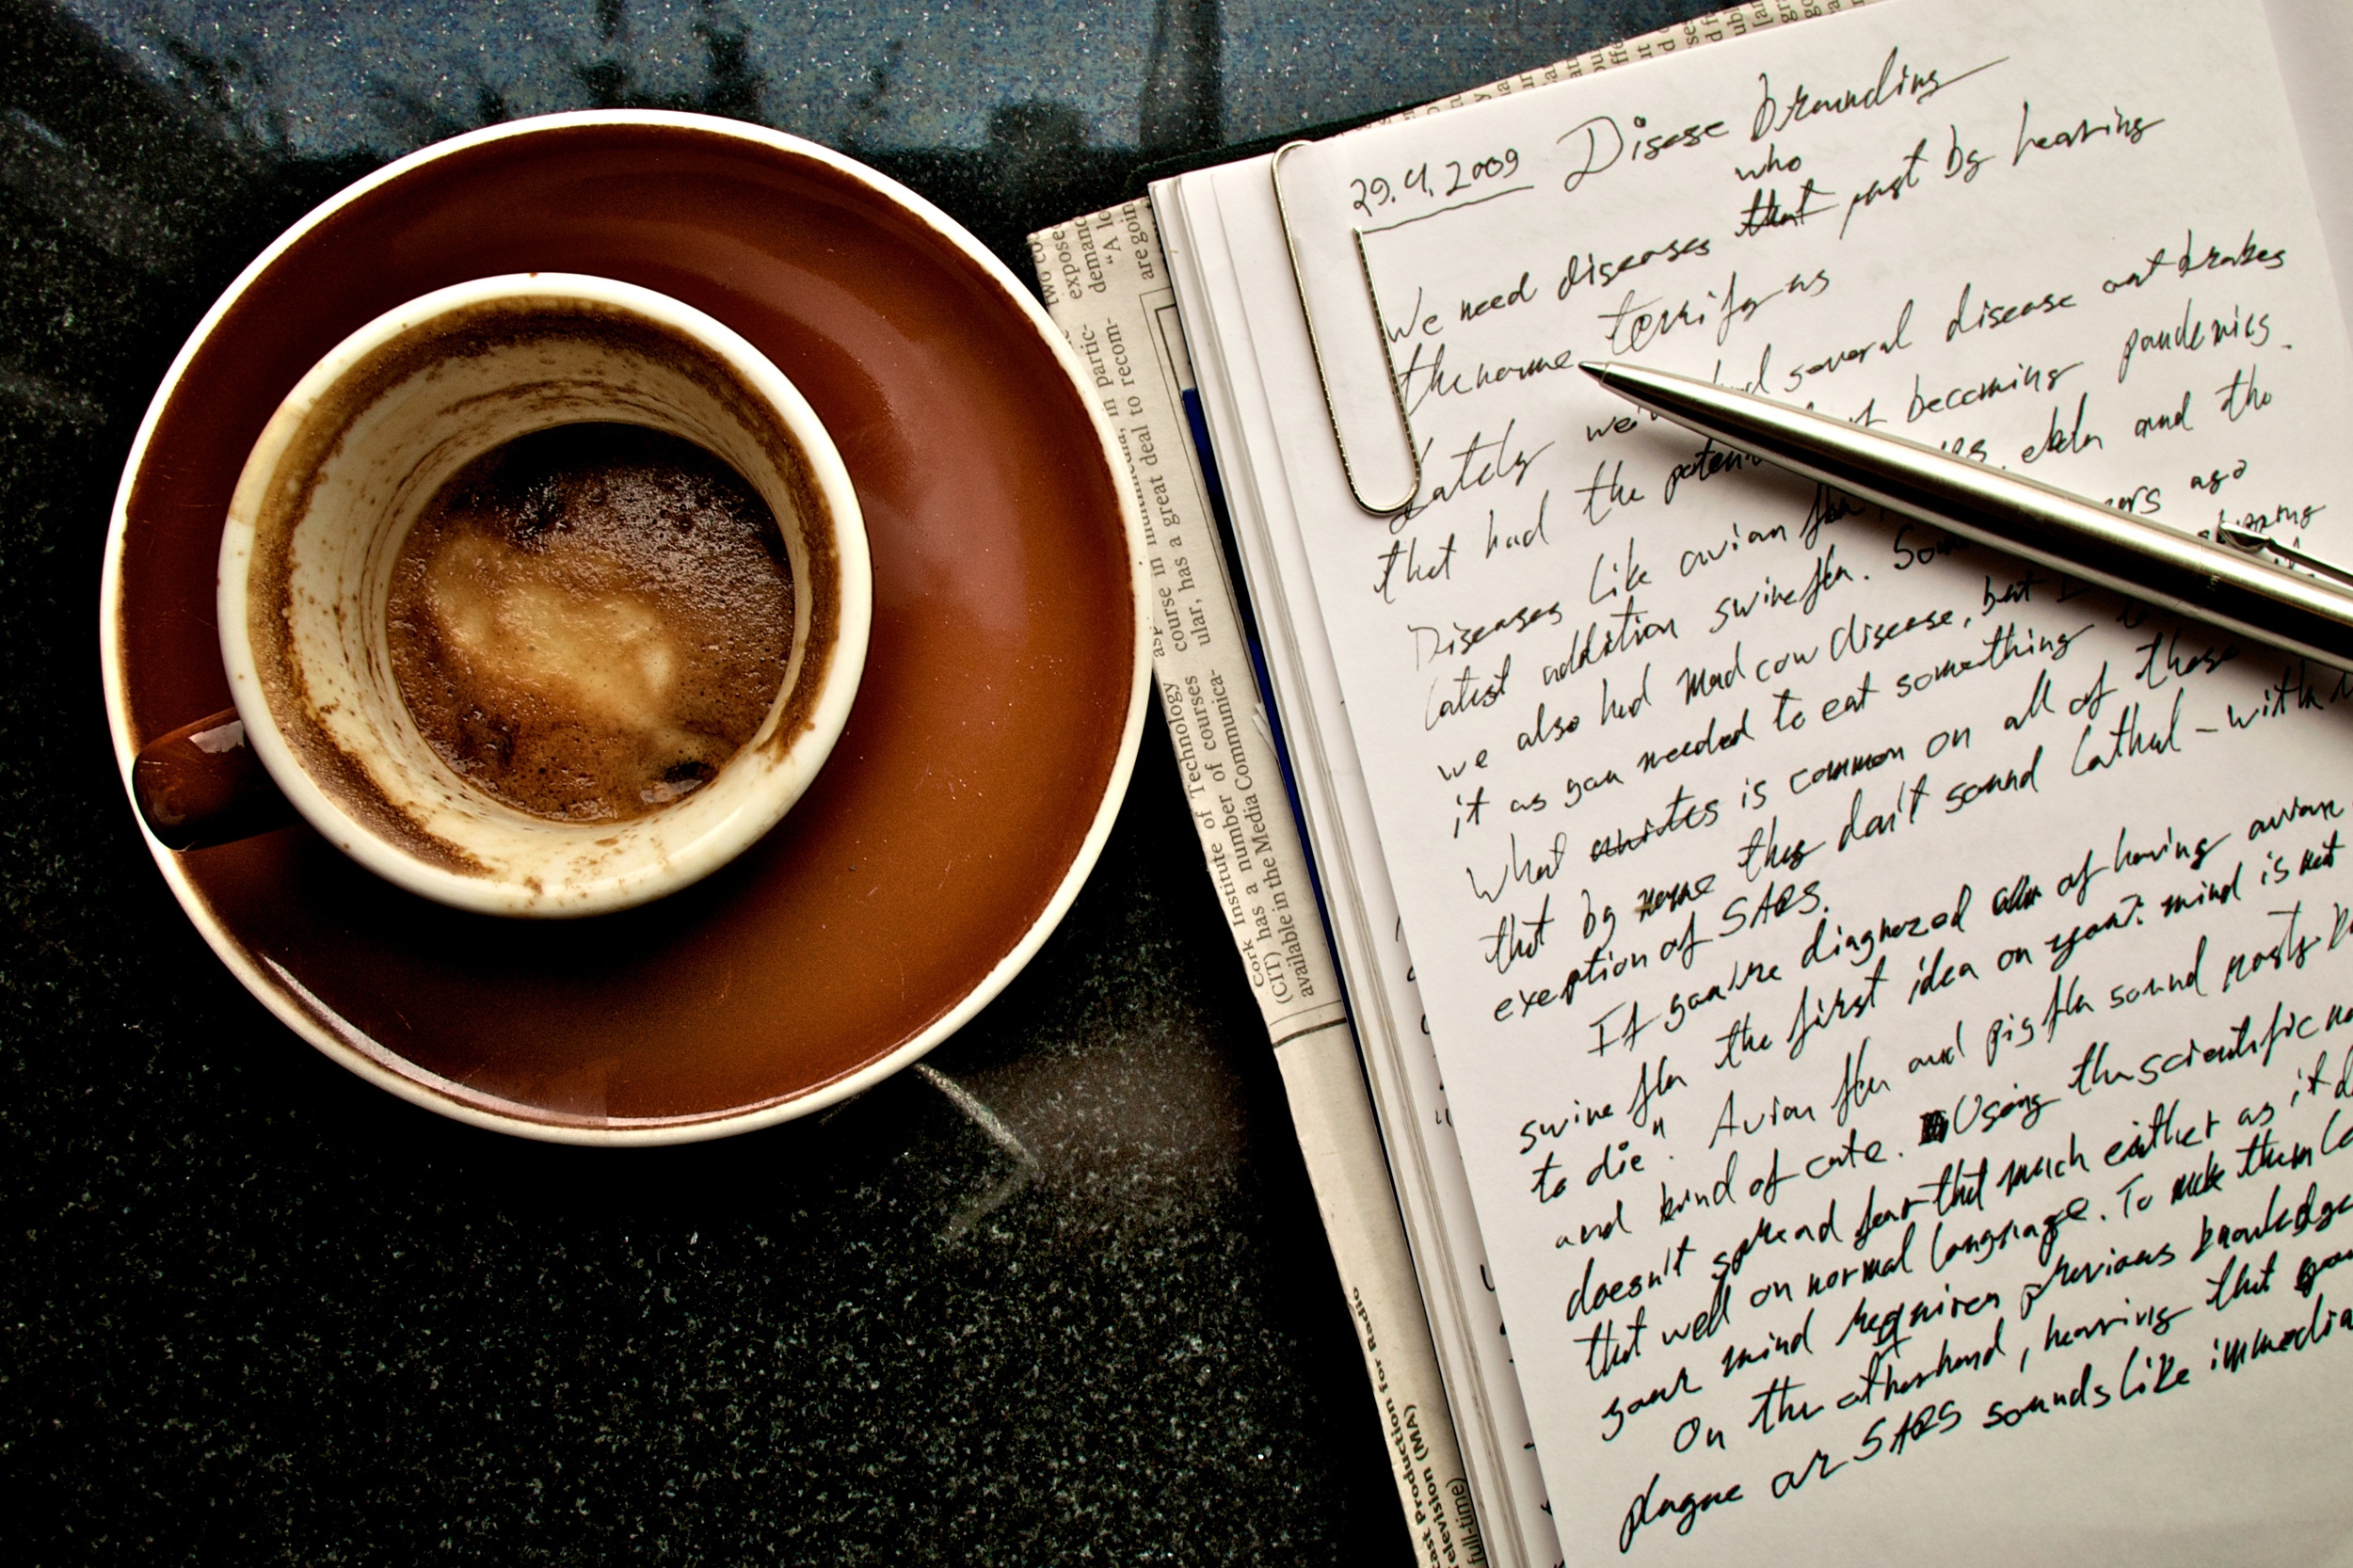 29.4.2009 Disease branding
who
We need diseases that just by hearing
the name terrify us
Lately we've had several disease outbrakes
that had the potential of becoming pandemics.
Diseases like avian flu, ebola and the
latest addition swine flu. ago
we also had Mad cow disease, but I
it as you needed to eat something to
What unites is common on all of these
that by name they don't sound lethal - with
exeption of SARS.
If you're diagnozed of having avian
swine flu the first idea on your mind is not
to die". Avian flu and pig flu sound mostly
and kind of cute. Using the scientific
doesn't spread fear that much either as it
that well on normal language. To make them
your mind requires previous knowledge
On the otherhand, hearing that you
plague or SARS sounds like immedia
two co
exposed
demand
"A lo
are goin
in partic-
course in
ular, has a great deal to recom-
Cork Institute of Technology
(CIT) has a number of courses
available in the Media Communica-
cast Production for Radio
elevision (MA)
full-time)